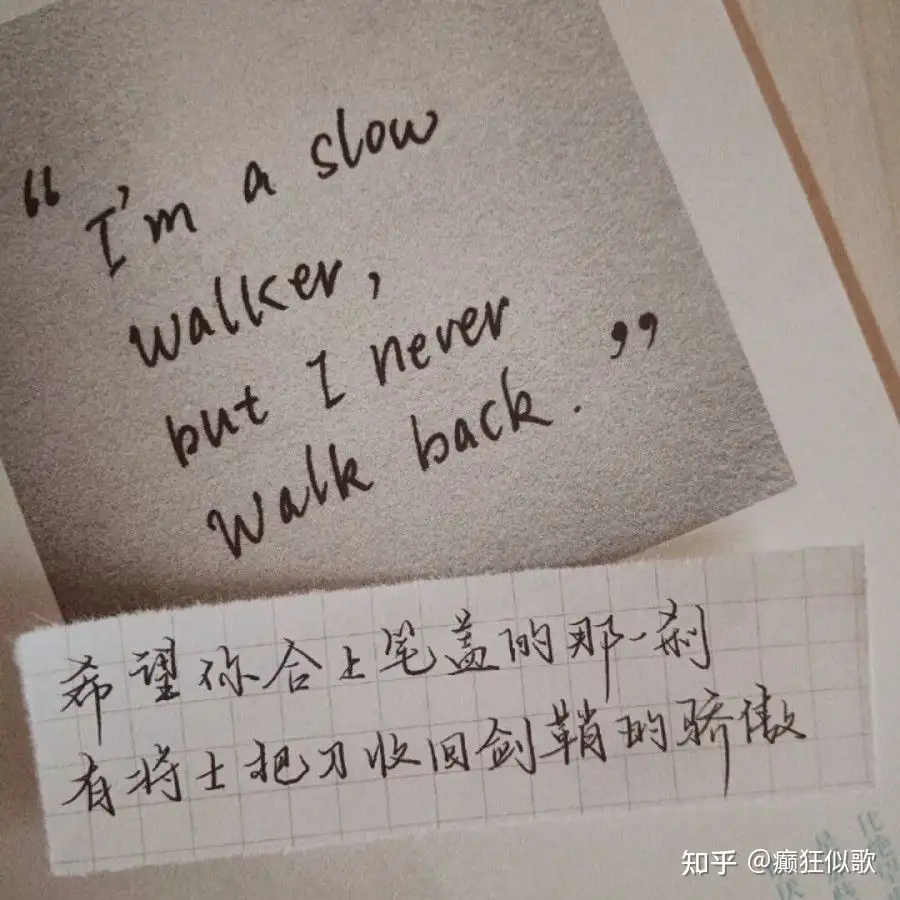 “I'm a slow
walker,
but I never
walk back.”
希望你合上笔盖的那一刹
有将士把刀收回剑鞘的骄傲
知乎 @癫狂似歌